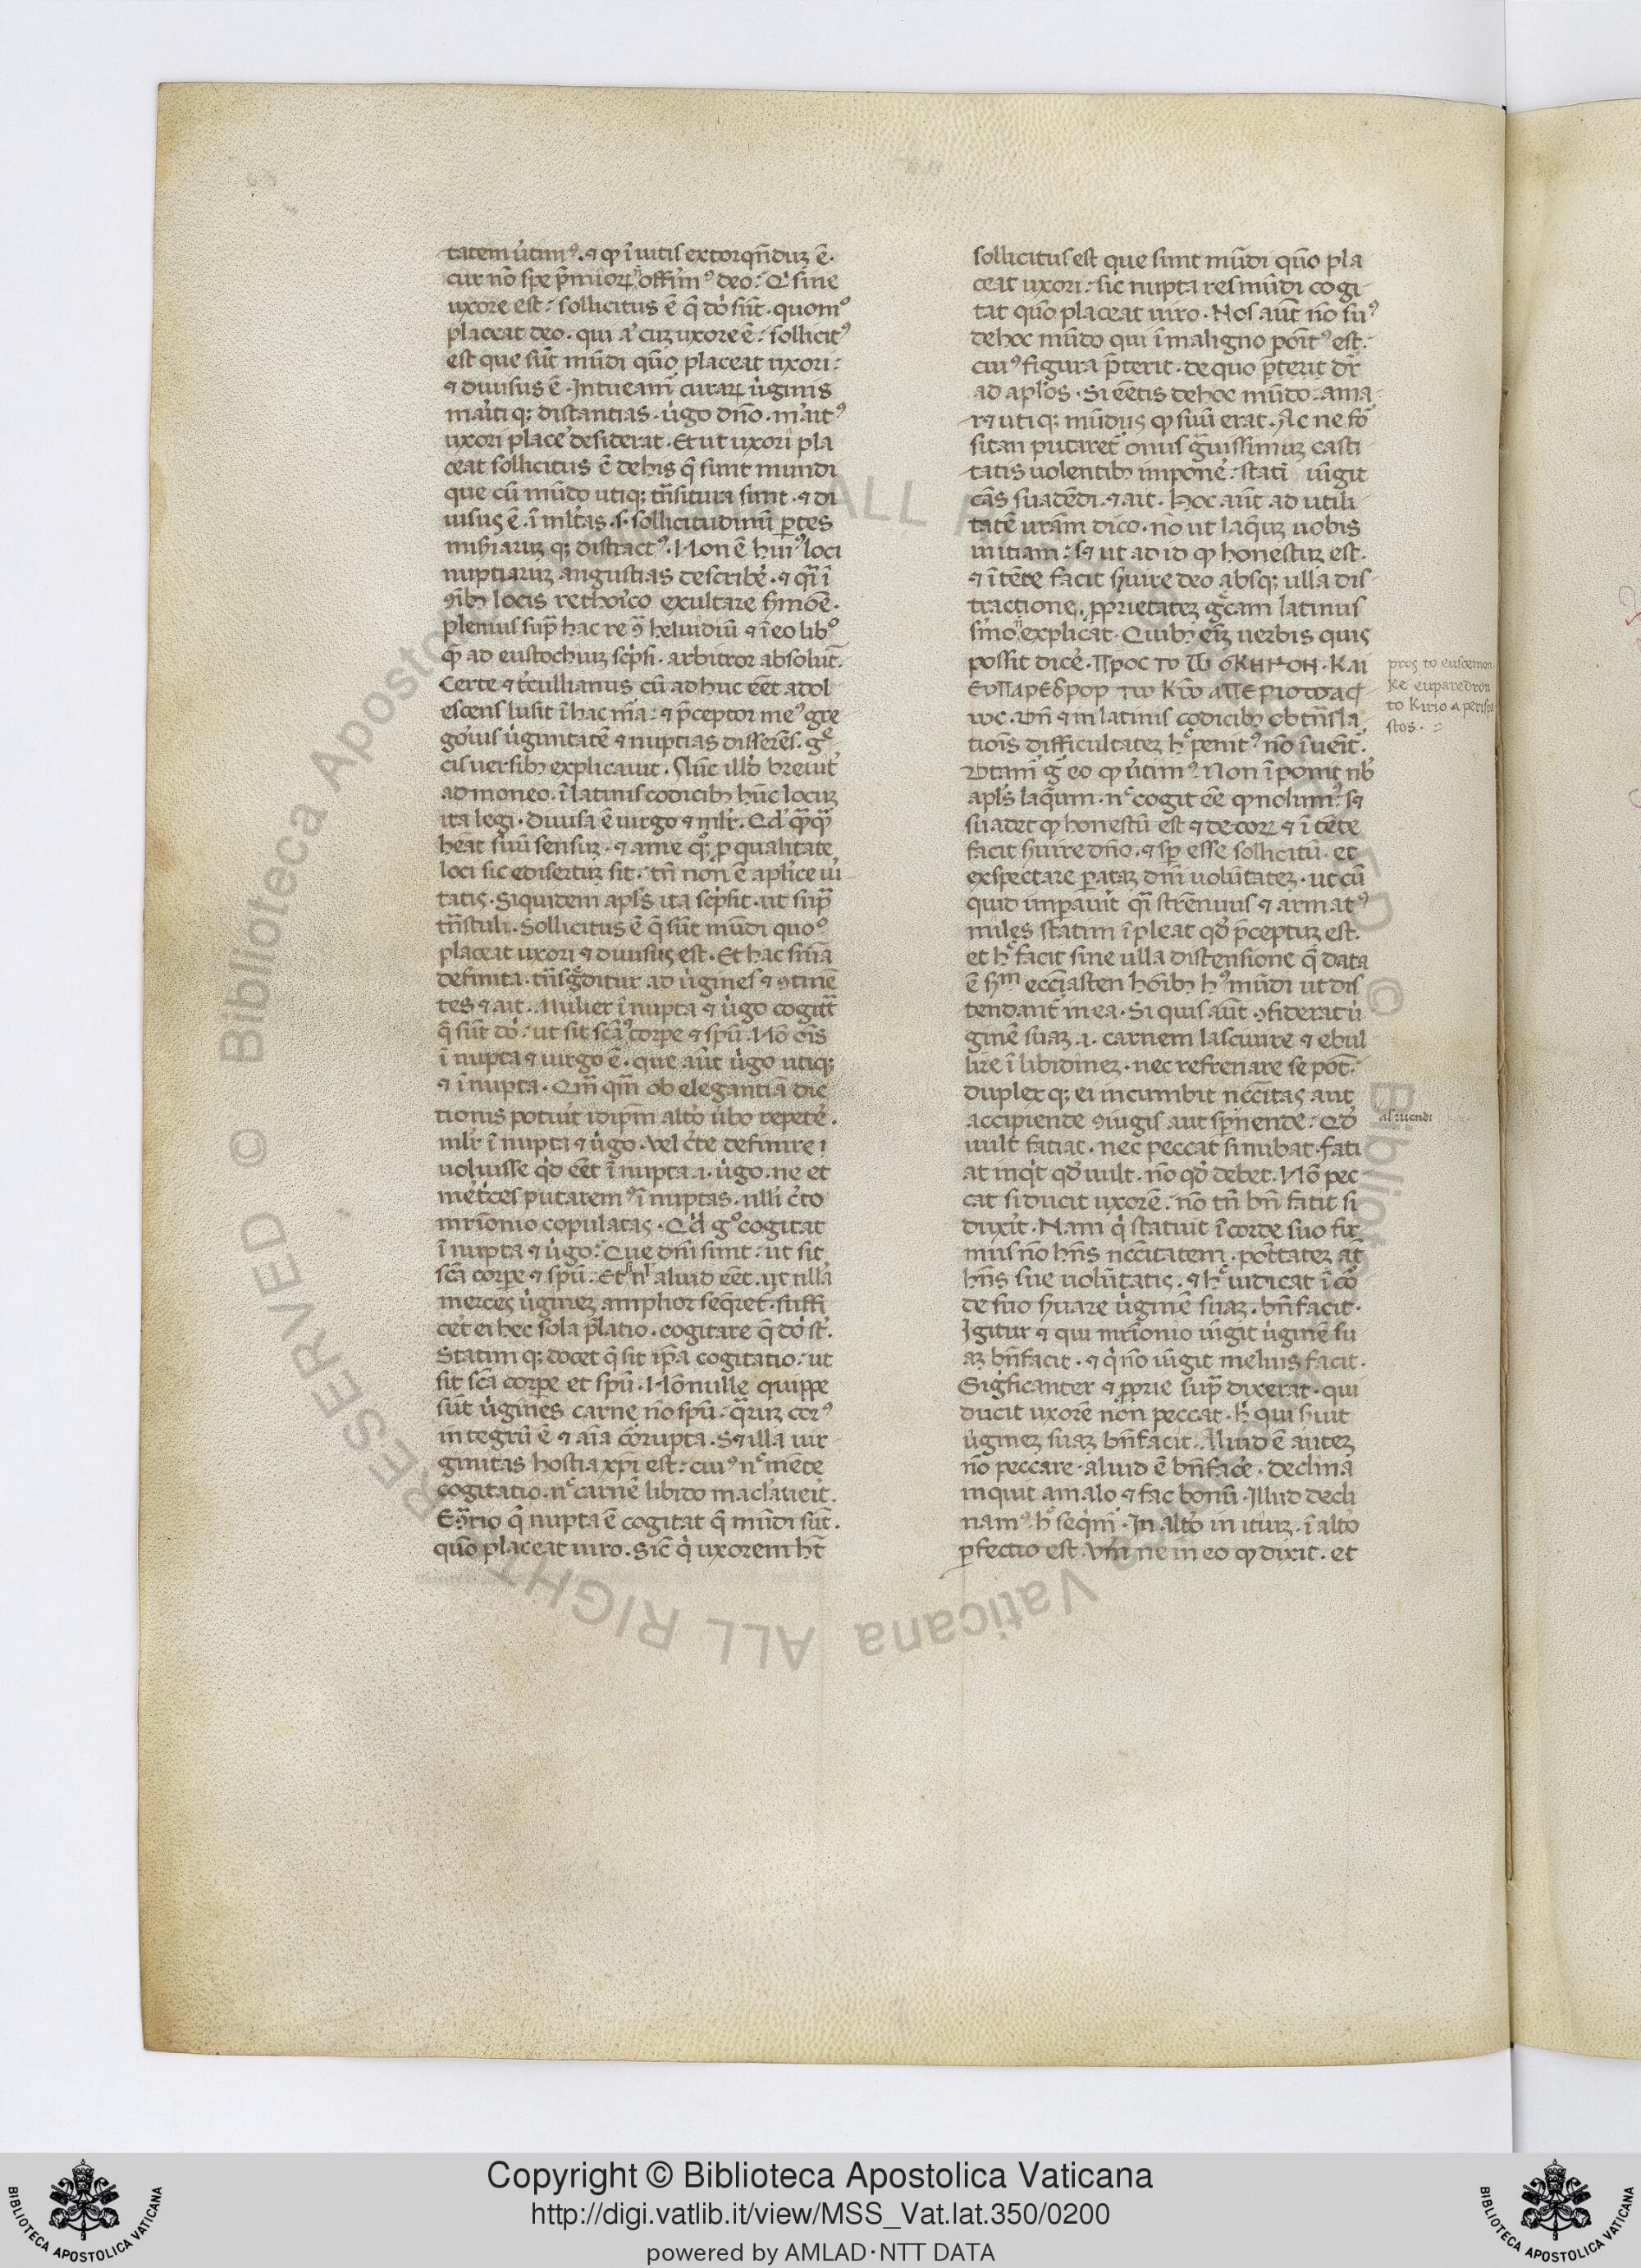 tatem útimꝰ. ⁊ ꝙ ī uitis extorqn̄duz ē.
cur nō spe p̄mioꝝ n̄ offim̓ꝰ deo. Qͥ sine
uxore est: sollicitus ē q̄ dō sūt. quomͦ
placeat deo. qui aͧ cuz uxore ē: sollicitꝰ
est que sūt mūdi quō placeat uxori:
⁊ diuisus ē. Intueam̄ curaꝝ ûginis
mar̓itiq; distantias. ûgo dn̄o. mar̓itꝰ
uxori place̓ desiderat. Et ut uxori pla
ceat sollicitus ē de his q̄ sunt mundi
que cū mūdo utiq; tn̄situra sunt. ⁊ di
uisus ē. ī ml̓tas. s. sollicitudinū ꝑtes
misiarūq; distractꝰ. Non ē huiꝰ loci
nuptiarūz angustias describe̓. ⁊ q̄i ī
ꝯībꝫ locis rethoīco exultare sͫmōe.
plenius sup̄ hac re ꝯ̄ heluidiū ⁊ ī eo libͦ
q̄ ad eustochiuz scͥpsi. arbitror absolut̄.
Certe ⁊ tēcullianus cū adhuc eēt adol
escens lusit ī hac mͣa: ⁊ p̄ceptor meꝰ gre
goīus ûginitatē ⁊ nuptias disserēs. gͤ
cis uersibꝫ explicauit. Nūc illͩ breuit̓
admoneo. ī latinis codicibꝫ hūc locuz
ita legi. Diuisa ē uirgo ⁊ ml̓r. Qd̓ qͣqͣ
heat̄ suū sensuz. ⁊ a me qͦ; ꝓ qualitate
loci sic edisertuz sit. tn̄ non ē aplīce uī
tatis. Siquidem apl̓s ita scͥpsit. ut supͣ
tn̄stuli. Sollicitus ē q̄ sūt mūdi quoͦ
placeat uxori ⁊ diuisus est. Et hac sn̄ia
definita. tn̄sgͤditur ad ûgines ⁊ ꝯtinē
tes ⁊ ait. Mulier ī nupta ⁊ ûgo cogitat̄
q̄ sūt dō. ut sit scā corpe ⁊ spū. Nō oīs
ī nupta ⁊ uirgo ē. que aūt ûgo utiq;
⁊ ī nupta. Qm̄ qm̄ ob elegantiā dic
tionis potuit idip̄m altͦ ûbo repete̓.
ml̓r ī nupta ⁊ ûgo. Vel c̓te definire
uoluisse qd̓ eēt ī nupta .i. ûgo. ne et
met̓ces putaremꝰ ī nuptas. nulli c̓to
mr̄ionio copulatas. Qd̓ gͦ cogitat
ī nupta ⁊ ûgo: Que dn̄i sunt: ut sit
scā corpe ⁊ spū. Et n̓l aliud eēt. ut nulla
merces ûginez amplior seq̄ret̄. suffi
ce̓t ei hec sola p̄latio. cogitare q̄ dō st̄.
Statim q; docet q̄ sit ip̄a cogitatio: ut
sit scā corpe et spū. Nōnulle quippe
sūt ûgines carne nō spū. q̄ruz corꝰ
integrū ē ⁊ aīa corrupta. S⁊ illa uir
ginitas hostia xp̄i est: cuiꝰ nͨ mēte
cogitatio. nͨ carnē libido maclaueit.
Eqͣrio q̄ nupta ē cogitat q̄ mūdi sūt.
quō placeat uiro. Sic̄ qͥ uxorem ht̄
sollicitus est que sunt mūdi quō pla
ceat uxori: sic nupta res mūdi cogi
tat quō placeat uiro. Nos aūt nō suꝰ
de hoc mūdo qui ī maligno poītꝰ est.
cuiꝰ figura p̄terit. de quo p̄terit dr̄
ad apl̓os. Si eētis de hoc mūdo: ama
r⁊ utiq; mūdus ꝙ suū erat. Ac ne fō
sitan putaret̄ onus gͣuissimuz casti
tatis uolentibꝫ impone̓: statī iūgit
cās suadēdi. ⁊ ait. Hoc aūt ad utili
tatē uram̄ dico. nō ut laq̄uz uobis
initiam: s⁊ ut ad id ꝙ honestuz est.
⁊ ītēte facit s̓uire deo absq; ulla dis
tractione. ꝓprietatez gͤcam latinus
s̓mo n̄ explicat. Quibꝫ eīz uerbis quis
possit dice̓. προс το ευ σκημον. και
ευπαρεδρορ τω κω απεριστασ
τως. Vn̄ ⁊ in latinis codicibꝫ ob tn̄sla
tiois̄ difficultatez hͦ penitꝰ nō īuēit̄.
Vtam̄ gͦ eo ꝙ útimꝰ. Non īponit nb̓
apl̓s laq̄um. nͨ cogit eē ꝙ nolumꝰ. s⁊
suadet ꝙ honestū est ⁊ decoꝝ ⁊ ītēte
facit s̓uire dn̄o. ⁊ sp̄ esse sollicitū. et
exspectare ꝑatāz dn̄i uolūtatez. ut cū
quid impauit̓ q̄i strēnuus ⁊ armatꝰ
miles statim īpleat qd̓ p̄ceptuz est.
et hͨ facit sine ulla distensione q̄ data
ē sͫm ecc̄iasten hoībꝫ hꝰ mūdi ut dis
tendant̄ in ea. Si quis aūt ꝯsiderat ú
ginē suaz .i. carnem lasciuire ⁊ ebul
lire ī libidinez. nec refrenare se pōt:
duplex q; ei incumbit nccītas aut
accipiende ꝯiugis aut sp̄nende: Qd̓
uult fatiat. nec peccat si nubat. fati
at inqͥt qd̓ uult. nō qd̓ debet. Nō pec
cat si ducit uxorē. nō tn̄ bn̄ fatit si
duxit̓. Nam qͥ statuit ī corde suo fir
mus nō hn̄s nccītatem. pot̄tatez aūt
hn̄s sue uolūtatis. ⁊ hͨ iudicat ī cō
de suo s̓uare ûginē suaz. bn̄ facit.
Igitur ⁊ qui mr̄ionio iūgit ûginē su
az bn̄facit. ⁊ qͥ nō iūgit melius facit.
Sigͥficanter ⁊ ꝓprie supͣ dixerat. qui
ducit uxorē non peccat. hͥ qui s̓uat
ûginez suaz bn̄facit. Aliud ē autez
nō peccare. aliud ē bn̄face̓. declina
inquit a malo ⁊ fac bonū. Illud decli
namꝰ. hͦ seqim̄. In altͦ initiuz. ī altͦ
ꝑfectio est. Vm̄ ne in eo ꝙ dixit. et
pros to euscemon
ke euparedron
to kirio aperispa
stos.
al' iuendi
Copyright © Biblioteca Apostolica Vaticana
http://digi.vatlib.it/view/MSS_Vat.lat.350/0200
powered by AMLAD·NTT DATA
BIBLIOTECA APOSTOLICA VATICANA
BIBLIOTECA APOSTOLICA VATICANA
© Biblioteca Apostolica Vaticana ALL RIGHT RESERVED